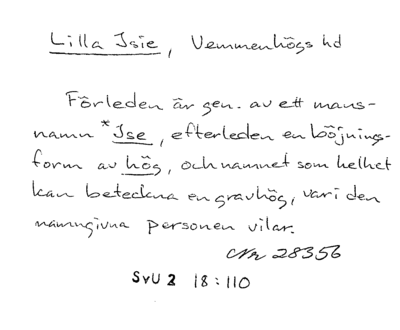 Lilla Isie, Vemmenhögs hd
Förleden är gen. av ett mans-
namn *Ise, efterleden en böjnings-
form av hög, och namnet som helhet
kan beteckna en gravhög, vari den
namngivna personen vilar.
Nr 28356
SvU 2 18:110